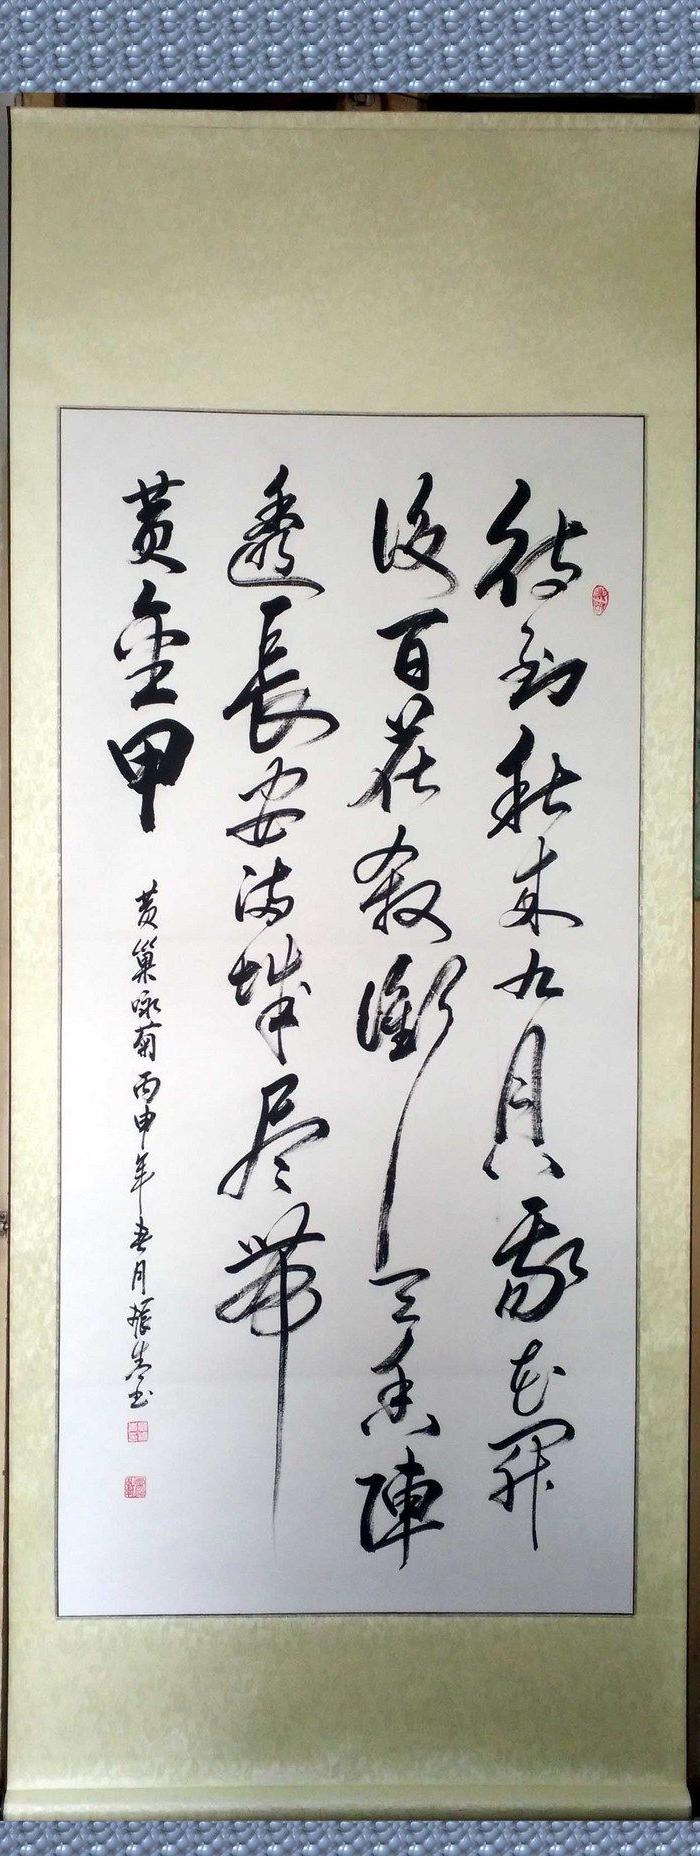 待到秋来九月八我花開
後百花殺衝天香陣
透長安滿城尽帶
黄金甲
黄巢咏菊丙申年春月